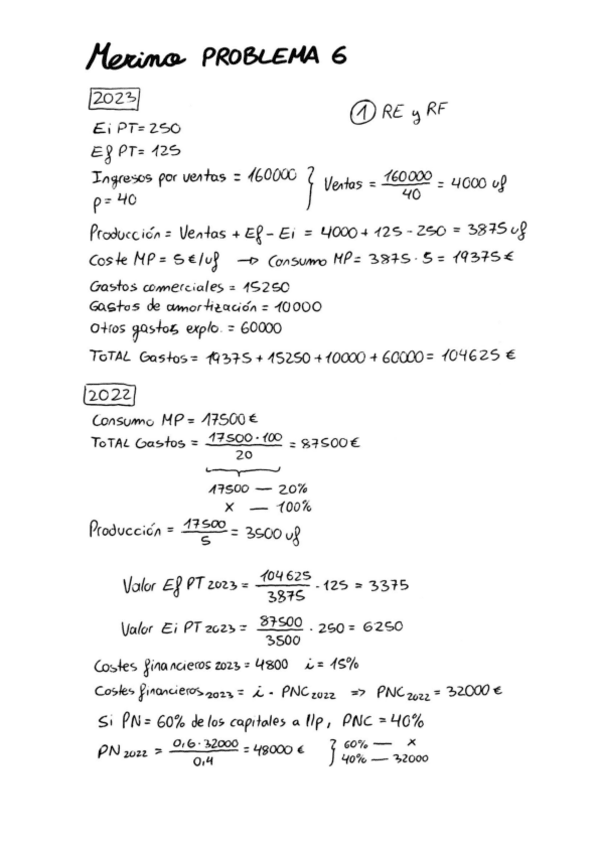 Merino PROBLEMA 6
2023
① RE y RF
Ei PT = 250
Ef PT = 125
Ingresos por ventas = 160000
p = 40
Ventas = 160000 / 40 = 4000 uf
Producción = Ventas + Ef - Ei = 4000 + 125 - 250 = 3875 uf
Coste MP = 5 €/uf → Consumo MP = 3875 · 5 = 19375 €
Gastos comerciales = 15250
Gastos de amortización = 10000
Otros gastos explo. = 60000
TOTAL Gastos = 19375 + 15250 + 10000 + 60000 = 104625 €
2022
Consumo MP = 17500 €
TOTAL Gastos = 17500 · 100 / 20 = 87500 €
17500 — 20%
x — 100%
Producción = 17500 / 5 = 3500 uf
Valor Ef PT 2023 = 104625 / 3875 · 125 = 3375
Valor Ei PT 2023 = 87500 / 3500 · 250 = 6250
Costes financieros 2023 = 4800 i = 15%
Costes financieros 2023 = i · PNC 2022 => PNC 2022 = 32000 €
Si PN = 60% de los capitales a l/p, PNC = 40%
PN 2022 = 0,6 · 32000 / 0,4 = 48000 €
60% — x
40% — 32000